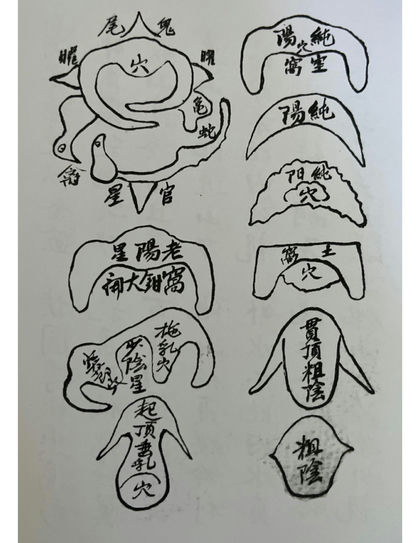 純陽
穴
窩
純陽
純阳
穴
土窩
穴
貫頂粗陰
粗陰
鬼尾
曜
穴
龜
蛇
禽
官星
老陽星
窩鉗大開
拖乳穴
少陰星
起頂垂乳
穴